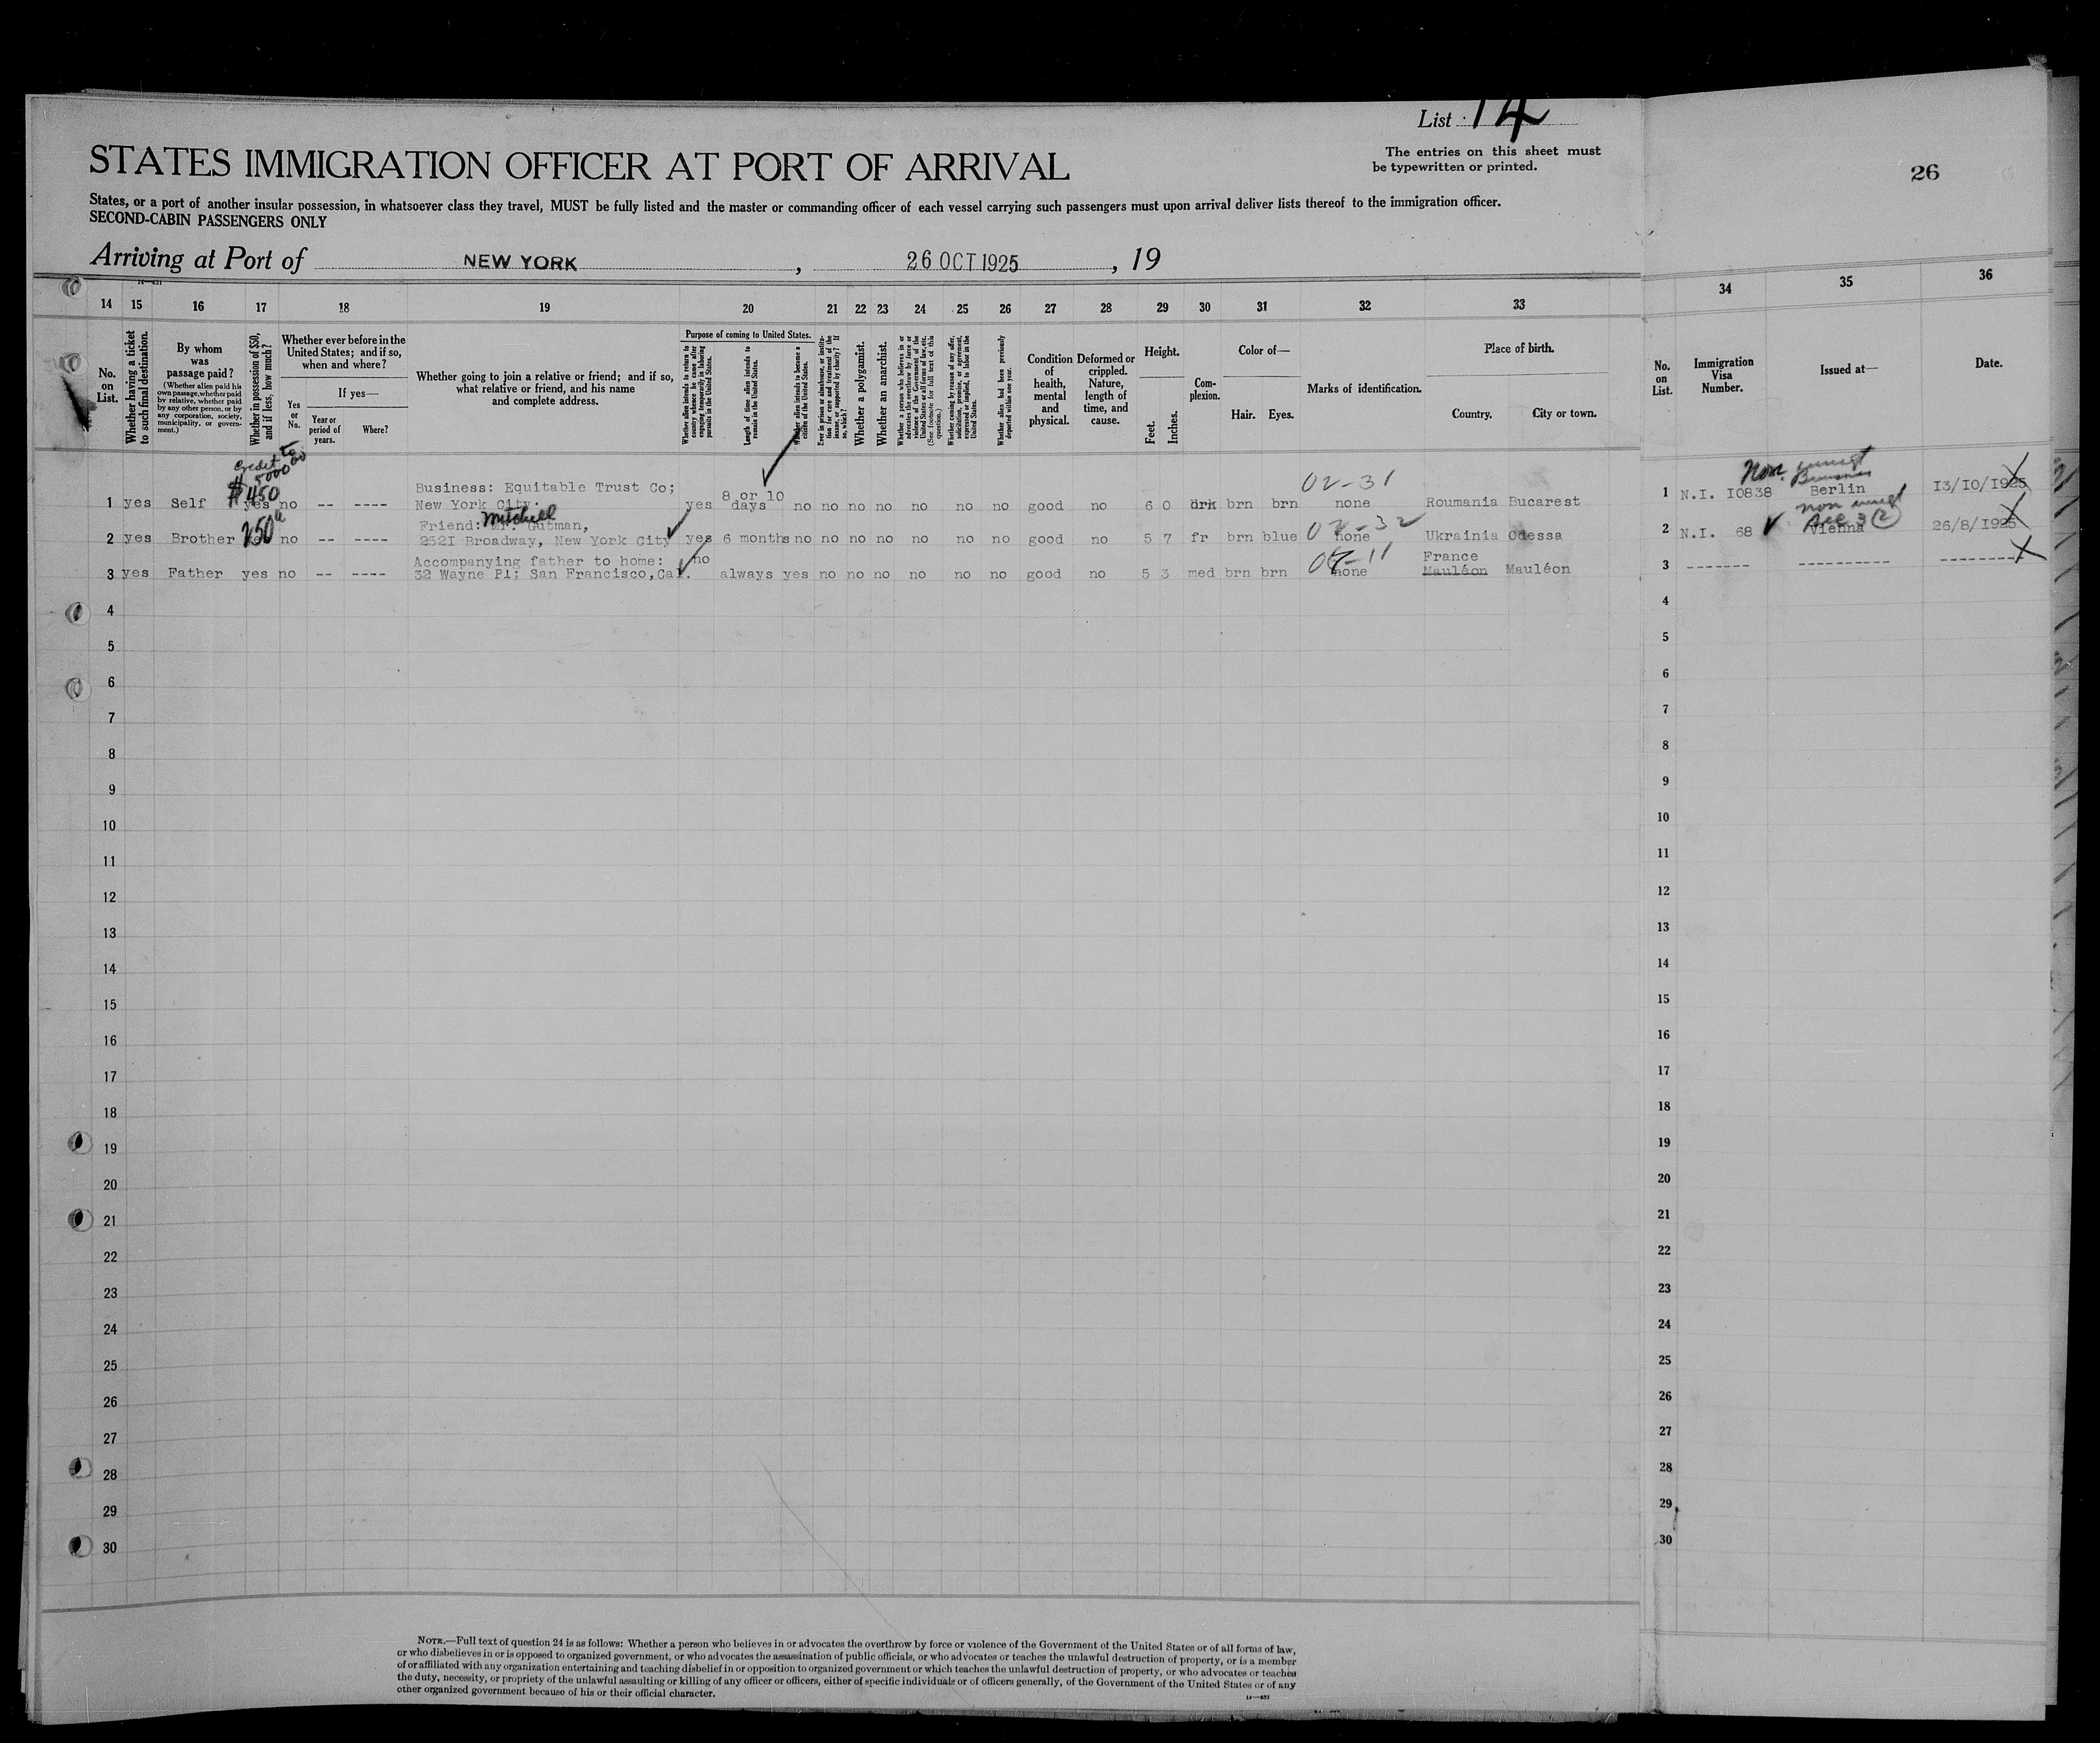 List 14
The entries on this sheet must
be typewritten or printed.
26
STATES IMMIGRATION OFFICER AT PORT OF ARRIVAL
States, or a port of another insular possession, in whatsoever class they travel, MUST be fully listed and the master or commanding officer of each vessel carrying such passengers must upon arrival deliver lists thereof to the immigration officer.
SECOND-CABIN PASSENGERS ONLY
Arriving at Port of NEW YORK , 26 OCT 1925 , 19
14 15 16 17 18 19 20 21 22 23 24 25 26 27 28 29 30 31 32 33 34 35 36
No. on List.
Whether having a ticket to such final destination.
By whom was passage paid?
(Whether alien paid his own passage, whether paid by relative, whether paid by any other person, or by any corporation, society, municipality, or government.)
Whether in possession of $50, and if less, how much?
Whether ever before in the United States; and if so, when and where?
Yes or No.
If yes—
Year or period of years.
Where?
Whether going to join a relative or friend; and if so, what relative or friend, and his name and complete address.
Purpose of coming to United States.
Whether alien intends to return to country whence he came after engaging temporarily in laboring pursuits in the United States.
Length of time alien intends to remain in the United States.
Whether alien intends to become a citizen of the United States.
Ever in prison or almshouse, or institution for care and treatment of the insane, or supported by charity? If so, which?
Whether a polygamist.
Whether an anarchist.
Whether a person who believes in or advocates the overthrow by force or violence of the Government of the United States or all forms of law, etc. (See footnote for full text of this question.)
Whether coming by reason of any offer, solicitation, promise, or agreement, expressed or implied, to labor in the United States.
Whether alien had been previously deported within one year.
Condition of health, mental and physical.
Deformed or crippled. Nature, length of time, and cause.
Height.
Feet. Inches.
Complexion.
Color of—
Hair. Eyes.
Marks of identification.
Place of birth.
Country. City or town.
No. on List.
Immigration Visa Number.
Issued at—
Date.
credit to
$ 5000 00
$450
02-31
Non immigt
Business: Equitable Trust Co;
1 yes Self yes no -- ---- New York City. yes 8 or 10 days no no no no no no no good no 6 0 drk brn brn none Roumania Bucarest 1 N.I. I0838 Berlin I3/IO/I925
Mitchell
250
02-32
non immigt
3 (2)
Friend: Mr. Gutman,
2 yes Brother yes no -- ---- 252I Broadway, New York City yes 6 months no no no no no no no good no 5 7 fr brn blue none Ukrainia Odessa 2 N.I. 68 Vienna 26/8/I925
Accompanying father to home: no France
3 yes Father yes no -- ---- 32 Wayne Pl; San Francisco,Cal. always yes no no no no no no good no 5 3 med brn brn none Mauléon Mauléon 3 ------- ---------- --------
4 4
5 5
6 6
7 7
8 8
9 9
10 10
11 11
12 12
13 13
14 14
15 15
16 16
17 17
18 18
19 19
20 20
21 21
22 22
23 23
24 24
25 25
26 26
27 27
28 28
29 29
30 30
NOTE.—Full text of question 24 is as follows: Whether a person who believes in or advocates the overthrow by force or violence of the Government of the United States or of all forms of law,
or who disbelieves in or is opposed to organized government, or who advocates the assassination of public officials, or who advocates or teaches the unlawful destruction of property, or is a member
of or affiliated with any organization entertaining and teaching disbelief in or opposition to organized government or which teaches the unlawful destruction of property, or who advocates or teaches
the duty, necessity, or propriety of the unlawful assaulting or killing of any officer or officers, either of specific individuals or of officers generally, of the Government of the United States or of any
other organized government because of his or their official character.